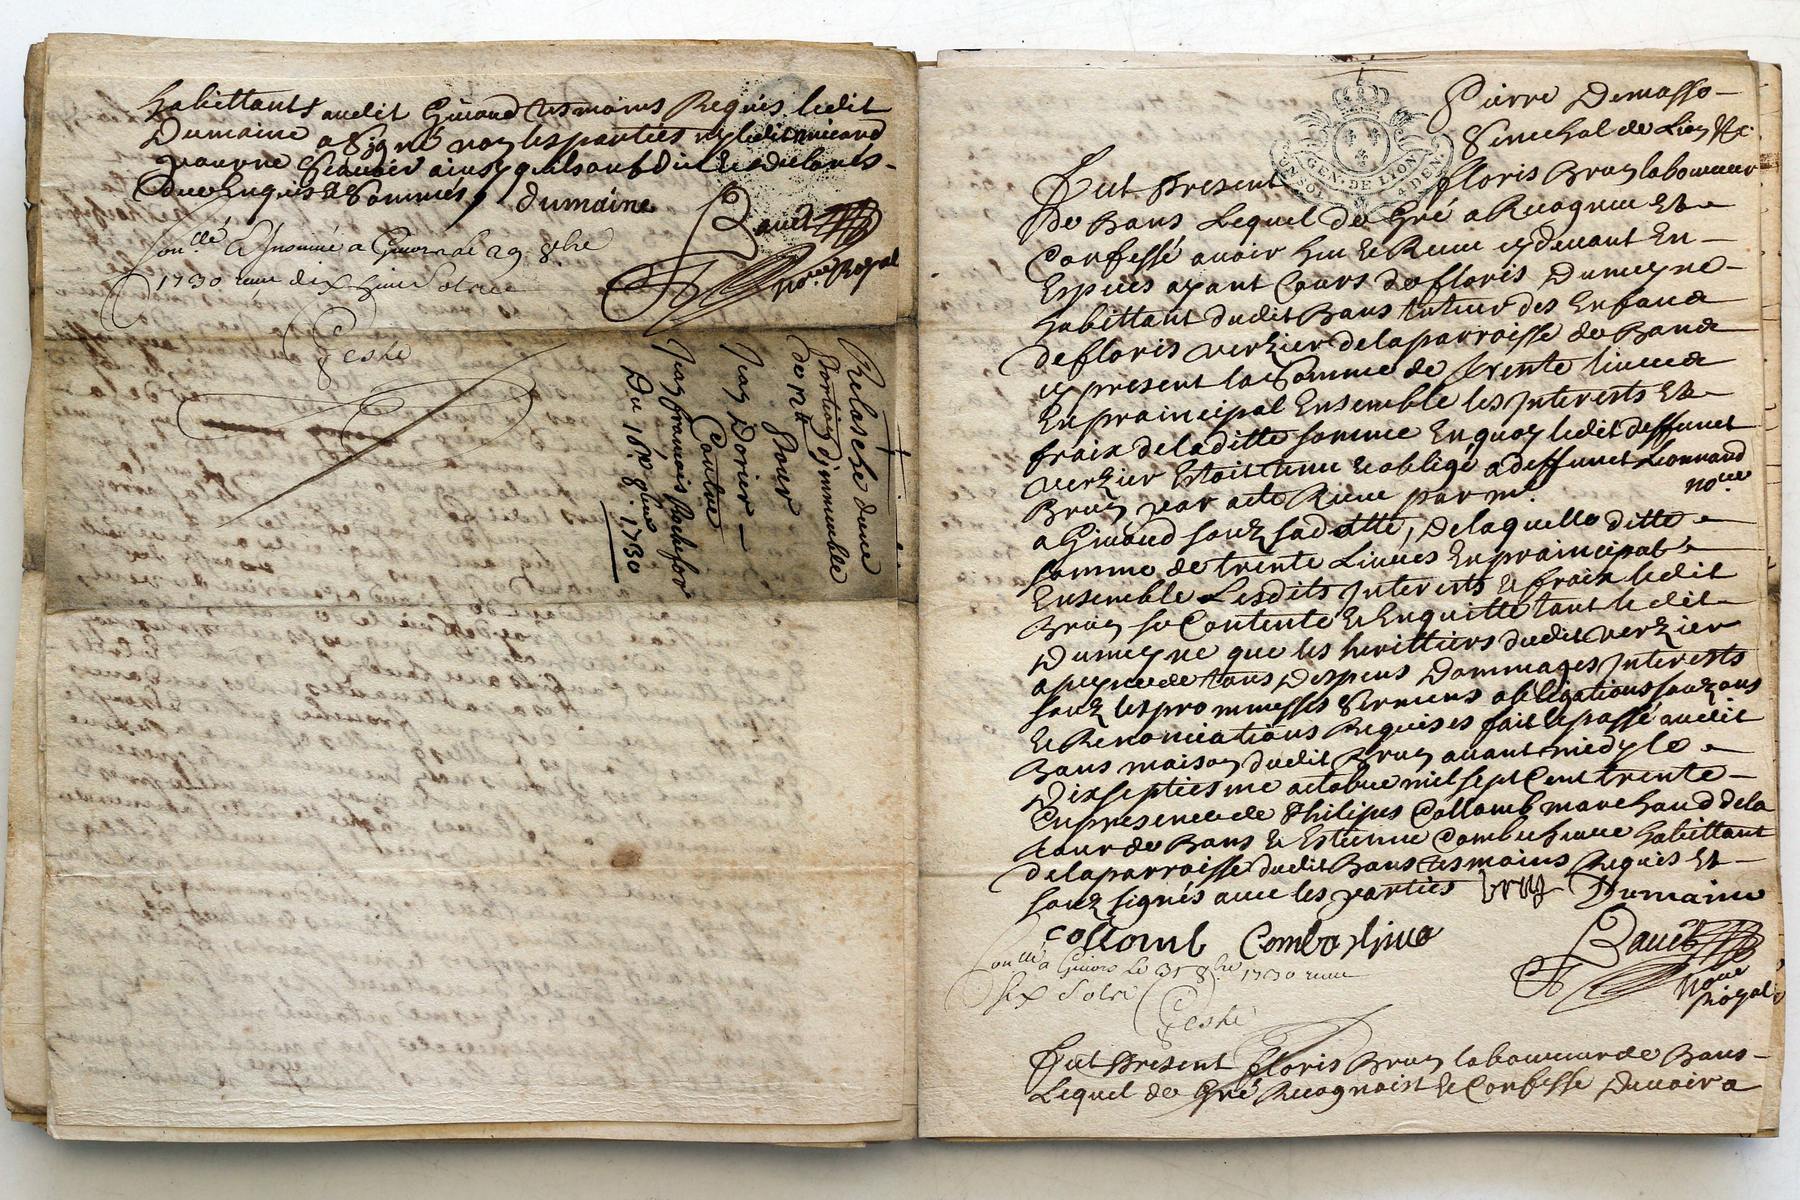 habittants audit Givord tesmoins Requis ledit
Dumaine a Signé non les parties ny ledit
pour ne Scavoir ainsy quils ont dit
de ce Enquis & Sommés dumaine
Bauet
no.re Royal
con.llé & Insinué a Givors le 29 8bre
1730 reçu dix huit Sols
Peshe
Relasche dune
portion d'immeuble
de n.t
pour
Jean Dorier
Contre
Jean françois Rochefor
Du 16e 8bre 1730
Pierre Demasso
Senechal de Lion &c
GEN. DE LYON
4 DEN
Fut Present floris Brun laboureur
de Bans Lequel de Gré a Recognu Et
Confessé avoir heu & Receu cy devant En
Especes ayant Cours de floris Dumeyne
habittant dudit Bans tuteur des Enfans
de floris verzier de la parroisse de Bans
cy present la Somme de trente livres
En praincipal Ensemble les Interests Et
fraix de laditte somme En quoy ledit deffunct
verzier Estoit tenu & obligé a deffunct Leonnard
Brun par acte Receu par m.e no.re
a Givord souz sa datte, De laquelle ditte
somme de trente Livres En praincipal
Ensemble Lesdits Interests & fraix ledit
Brun se Contente & En quitte tant ledit
Dumeyne que les herittiers dudit verzier
a peyne de tous Despens Dommages Interests
souz les prommesses Sermens obligations souzons
& Renonciations Requises fait & passé audit
Bans maison dudit Brun avant midy le
Dixseptiesme octobre mil sept Cent trente
En presence de Philipes Collomb marchand de la
tour de Bans & Estienne Combechieve habittant
de la parroisse dudit Bans tesmoins Requis Et
souz signés avec les parties brun Dumaine
collomb Combachive
Bauet
no.re Royal
con.llé a Givors le 31 8bre 1730 reçu
six Sols
Peshe
Fut Present floris Brun laboureur de Bans
Lequel de Gré Recognoist & Confesse Devoir a